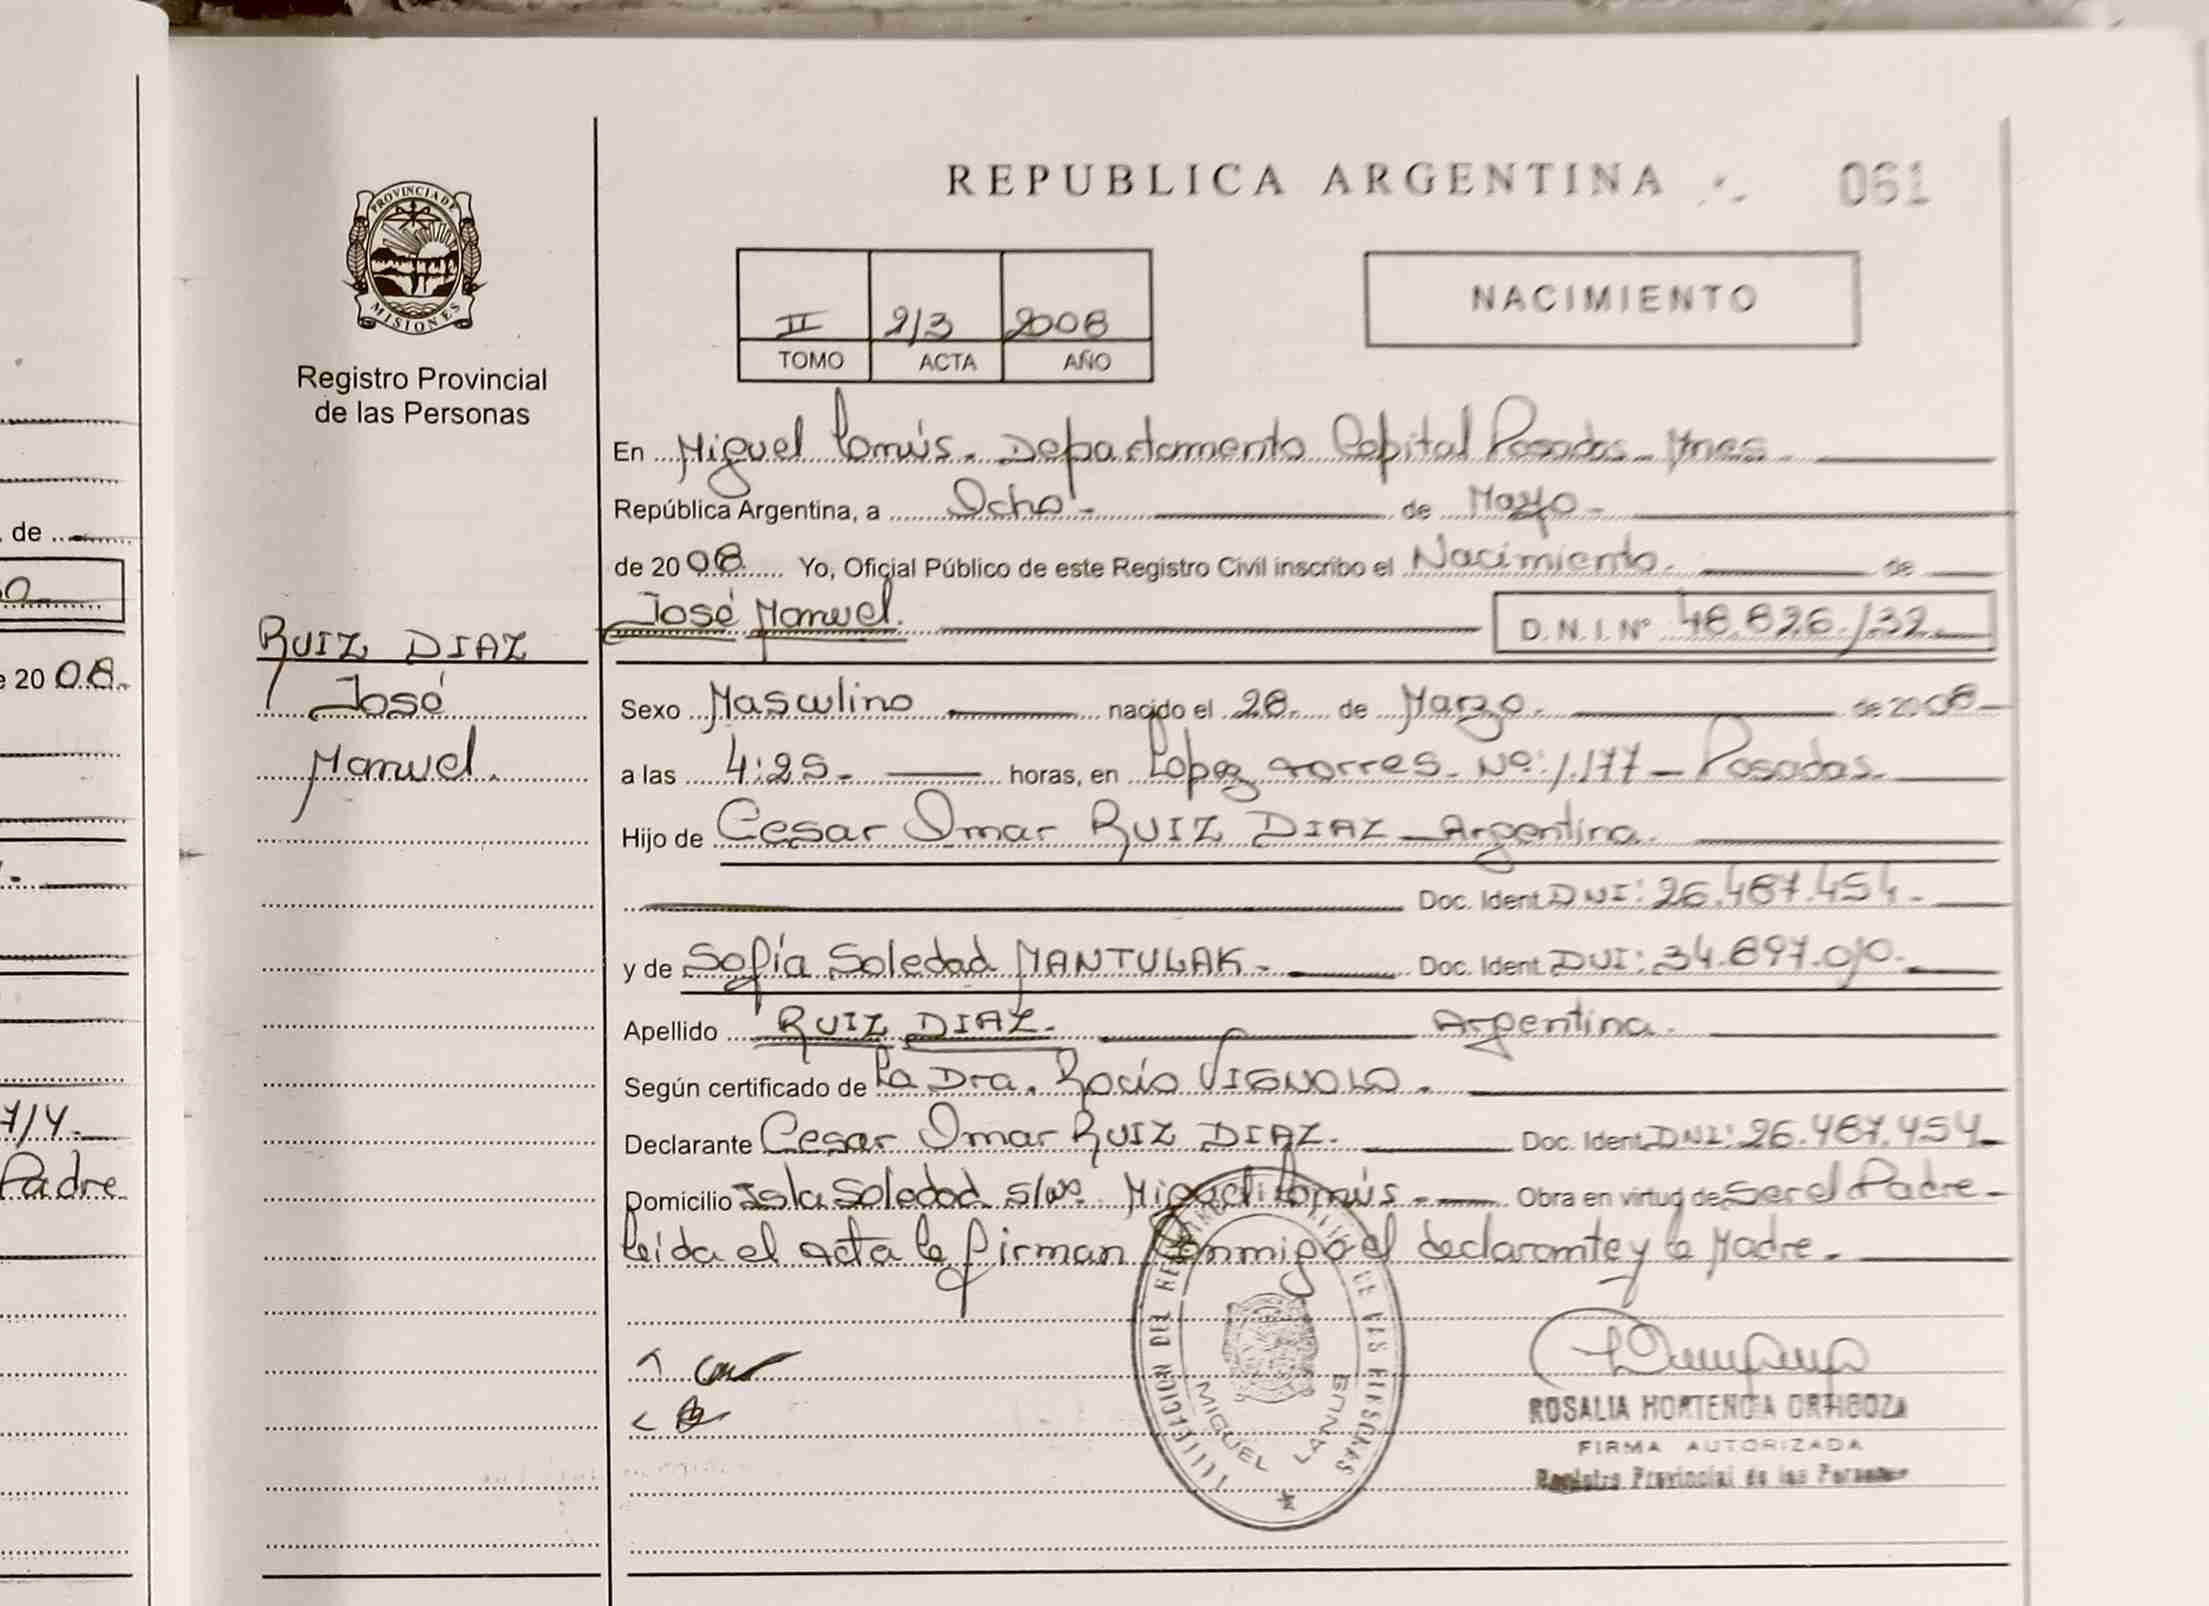 PROVINCIA DE
MISIONES
Registro Provincial
de las Personas
RUIZ DIAZ
José
Manuel.
REPUBLICA ARGENTINA
061
II 213 2008
TOMO ACTA AÑO
NACIMIENTO
En Miguel Lanús. Departamento Capital Posadas Mnes.
República Argentina, a Ocho. de Mayo
de 2008 Yo, Oficial Público de este Registro Civil inscribo el Nacimiento. de
José Manuel. D. N. I. Nº 48.826.132
Sexo Masculino nacido el 28 de Marzo de 2008
a las 4:25 horas, en Lopez torres Nº: 1.177 - Posadas
Hijo de Cesar Omar RUIZ DIAZ - Argentina.
Doc. Ident DNI: 26.487.454
y de Sofía Soledad MANTULAK. Doc. Ident DNI: 34.897.010.
Apellido RUIZ DIAZ. Argentina.
Según certificado de La Dra. Rocío VIGNOLO.
Declarante Cesar Omar RUIZ DIAZ. Doc. Ident DNI: 26.487.454
Domicilio Isla Soledad s/nº Miguel Lanús. Obra en virtud de ser el Padre
Leida el acta la firman Conmigo el declarante y la Madre.
MIGUEL LANUS
ROSALIA HORTENCIA ORTIGOZA
FIRMA AUTORIZADA
Registro Provincial de las Personas
de
2008.
7/4.
Padre